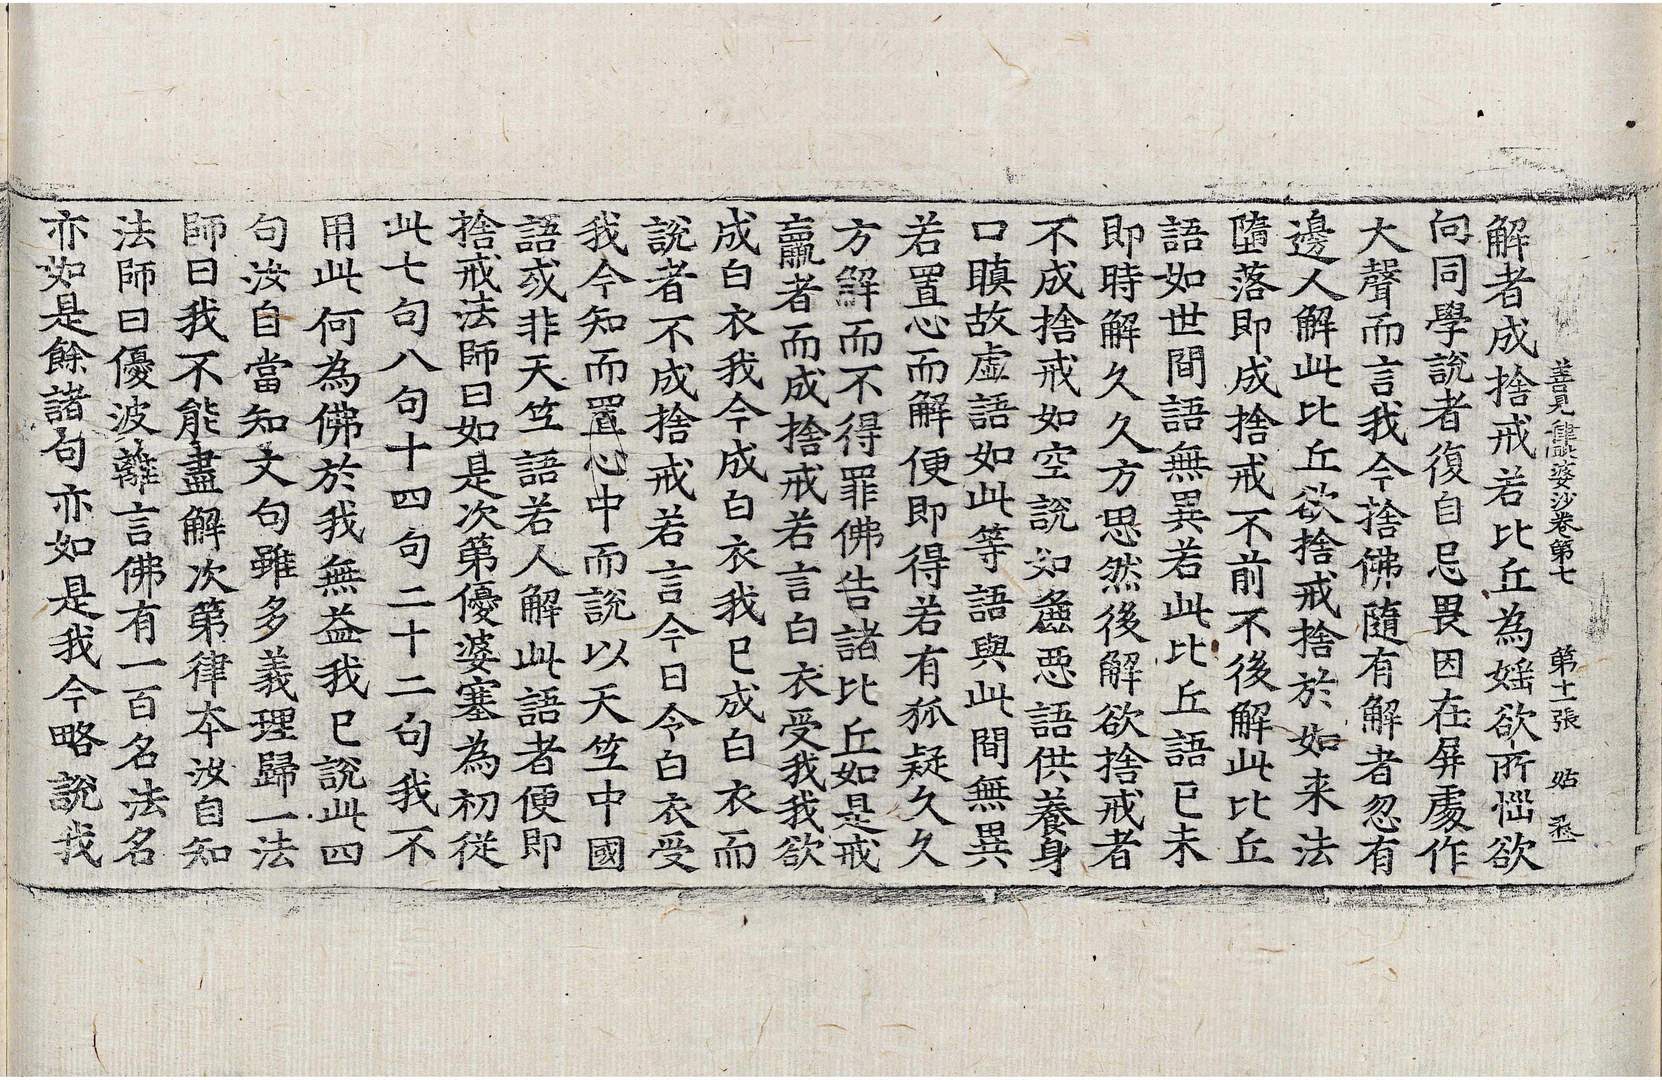 善見律毗婆沙卷第七 第十一張 姑
解者成捨戒若比丘為婬欲所惱欲
向同學說者復自忌畏因在屏處作
大聲而言我今捨佛隨有解者忽有
邊人解此比丘欲捨戒捨於如来法
墮落即成捨戒不前不後解此比丘
語如世間語無異若此比丘語已未
即時解久久方思然後解欲捨戒者
不成捨戒如空說如麁惡語供養身
口瞋故虛語如此等語語與此間無異
若置心而解便即得若有狐疑久久
方解而不得罪佛告諸比丘如是戒
羸者而成捨戒若言白衣受我我欲
成白衣我今成白衣我已成白衣而
說者不成捨戒若言今日令白衣受
我今知而置心中而說以天竺中國
語或非天竺語若人解此語者便即
捨戒法師曰如是次第優婆塞為初從
此七句八句十四句二十二句我不
用此何為佛於我無益我已說此四
句汝自當知文句雖多義理歸一法
師曰我不能盡解次第律夲汝自知
法師曰優波離言佛有一百名法名
亦如是餘諸句亦如是我今略說我